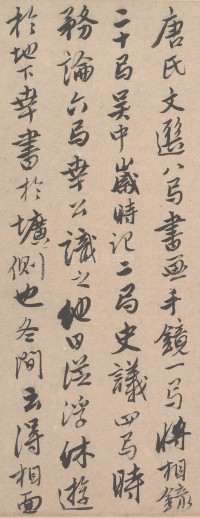 唐氏文選八弓書画手鏡一弓將相錄
二十弓吳中歲時記二弓史議四弓時
務論六弓幸公識之他日從浮休遊
於地下幸書於壙側也冬間云得相面